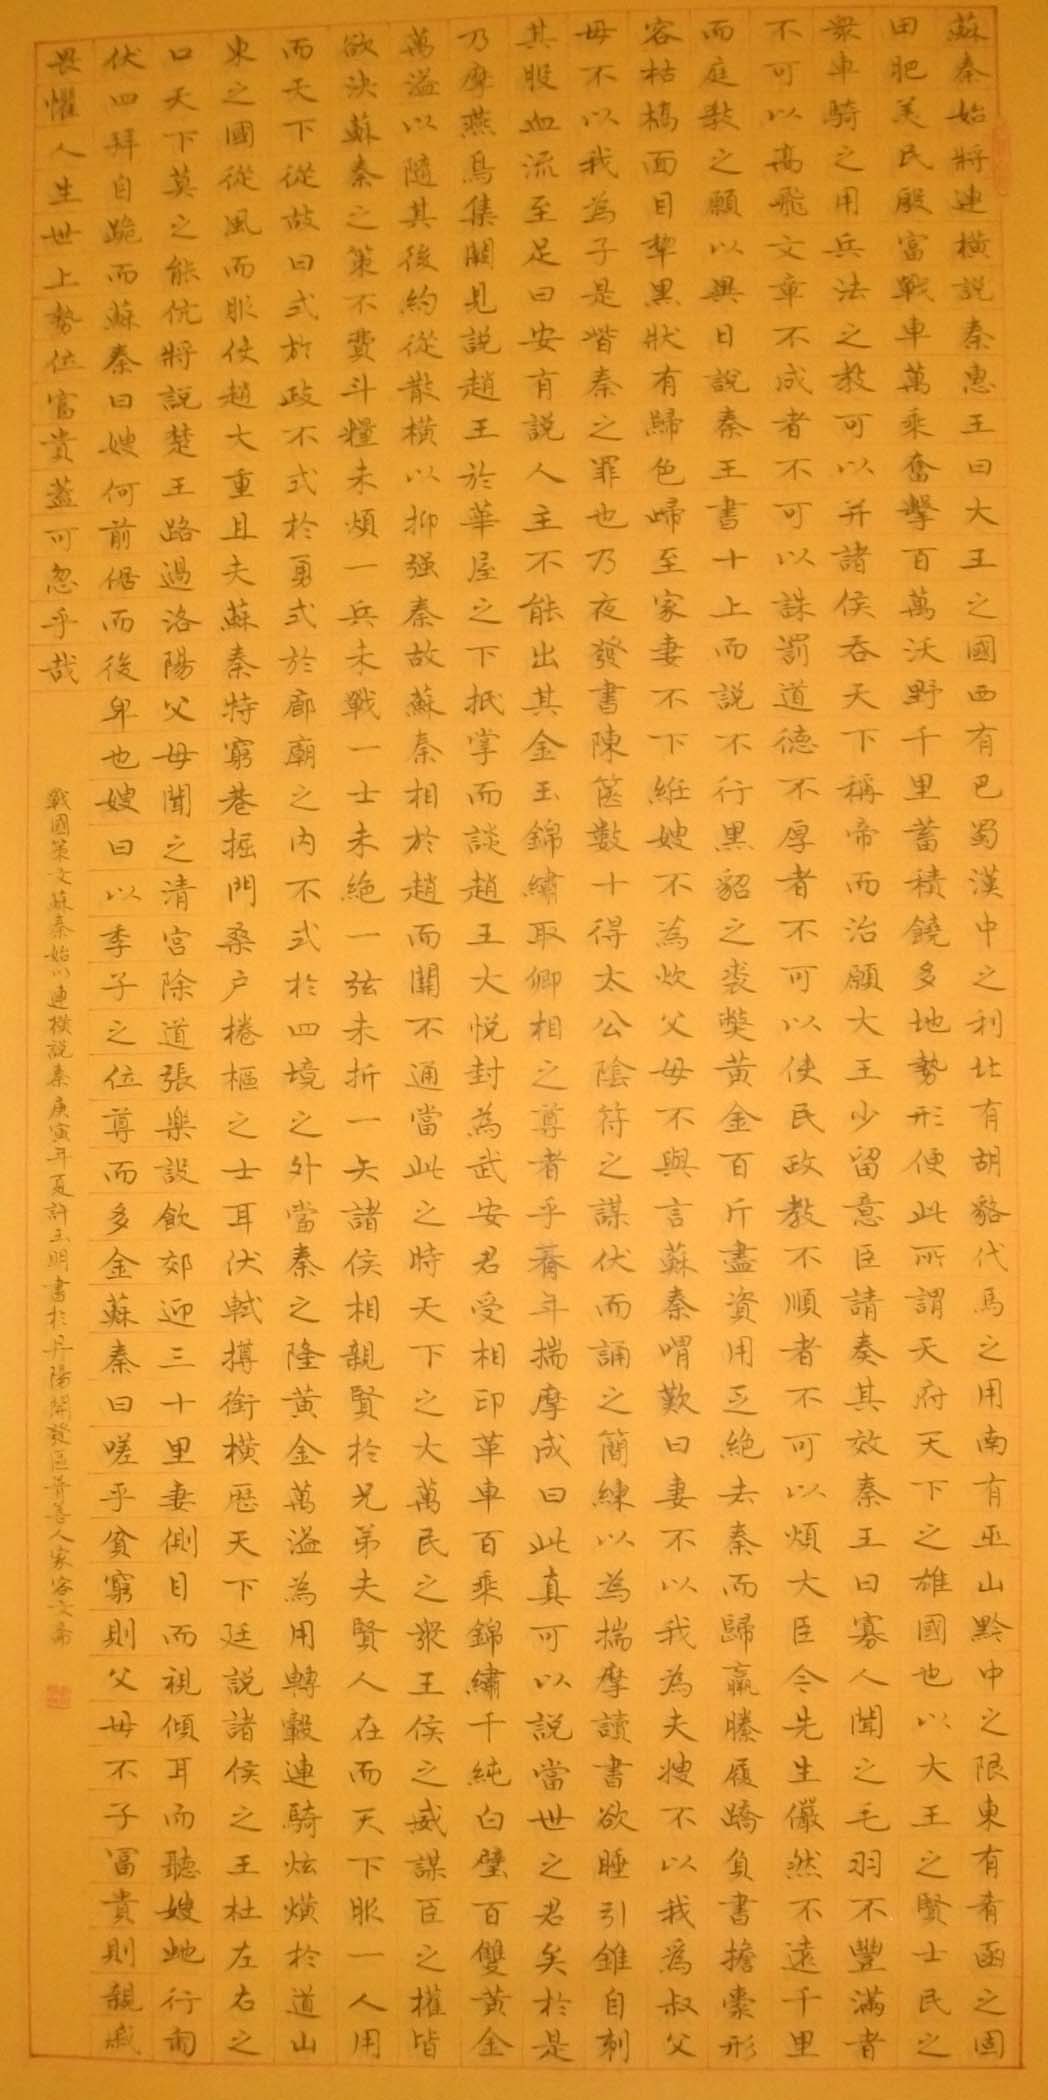 蘇秦始將連橫説秦惠王曰大王之國西有巴蜀漢中之利北有胡貉代馬之用南有巫山黔中之限東有肴函之固
田肥美民殷富戰車萬乘奮擊百萬沃野千里蓄積饒多地勢形便此所謂天府天下之雄國也以大王之賢士民之
衆車騎之用兵法之教可以并諸侯吞天下稱帝而治願大王少留意臣請奏其效秦王曰寡人聞之毛羽不豐滿者
不可以高飛文章不成者不可以誅罰道德不厚者不可以使民政教不順者不可以煩大臣今先生儼然不遠千里
而庭教之願以異日説秦王書十上而説不行黑貂之裘獘黃金百斤盡資用乏絕去秦而歸羸縢履蹻負書擔橐形
容枯槁面目犂黑狀有歸色歸至家妻不下絍嫂不為炊父母不與言蘇秦喟歎曰妻不以我為夫嫂不以我為叔父
母不以我為子是皆秦之罪也乃夜發書陳篋數十得太公陰符之謀伏而誦之簡練以為揣摩讀書欲睡引錐自刺
其股血流至足曰安有説人主不能出其金玉錦繡取卿相之尊者乎朞年揣摩成曰此真可以説當世之君矣於是
乃摩燕烏集闕見説趙王於華屋之下抵掌而談趙王大悅封為武安君受相印革車百乘錦繡千純白璧百雙黃金
萬溢以隨其後約從散橫以抑强秦故蘇秦相於趙而關不通當此之時天下之大萬民之衆王侯之威謀臣之權皆
欲決蘇秦之策不費斗糧未煩一兵未戰一士未絕一弦未折一矢諸侯相親賢於兄弟夫賢人在而天下服一人用
而天下從故曰式於政不式於勇式於廊廟之內不式於四境之外當秦之隆黃金萬溢為用轉轂連騎炫熿於道山
東之國從風而服使趙大重且夫蘇秦特窮巷掘門桑戶棬樞之士耳伏軾撙銜橫歷天下廷説諸侯之王杜左右之
口天下莫之能伉將説楚王路過洛陽父母聞之清宮除道張樂設飲郊迎三十里妻側目而視傾耳而聽嫂虵行匍
伏四拜自跪而蘇秦曰嫂何前倨而後卑也嫂曰以季子之位尊而多金蘇秦曰嗟乎貧窮則父母不子富貴則親戚
畏懼人生世上勢位富貴蓋可忽乎哉
戰國策文蘇秦始以連橫説秦庚寅年夏許玉明書於丹陽開發區善人家